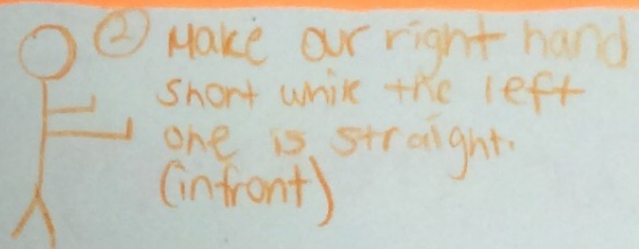 ② Make our right hand
short while the left
one is straight.
(infront)